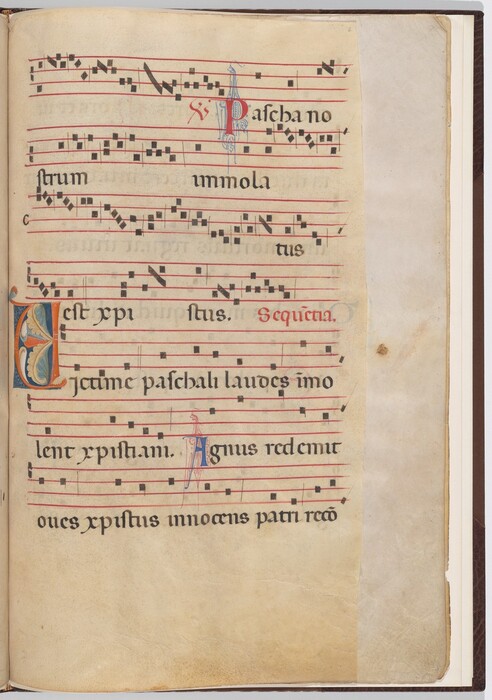 ℣ Pascha no
strum immola
tus
est xpi stus. Sequētia.
Victime paschali laudes īmo
lent xpistiani. Agnus redemit
oues xpistus innocens patri recō